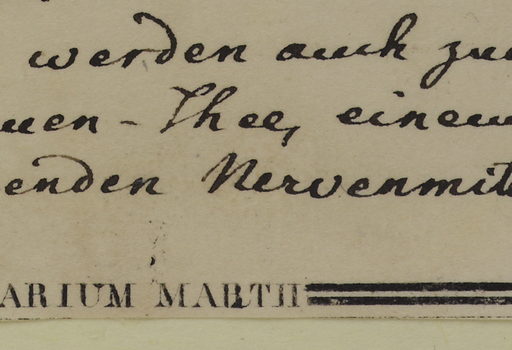 werden auch zu
uen - Thee, einem
enden Nervenmit
ARIUM MARTII